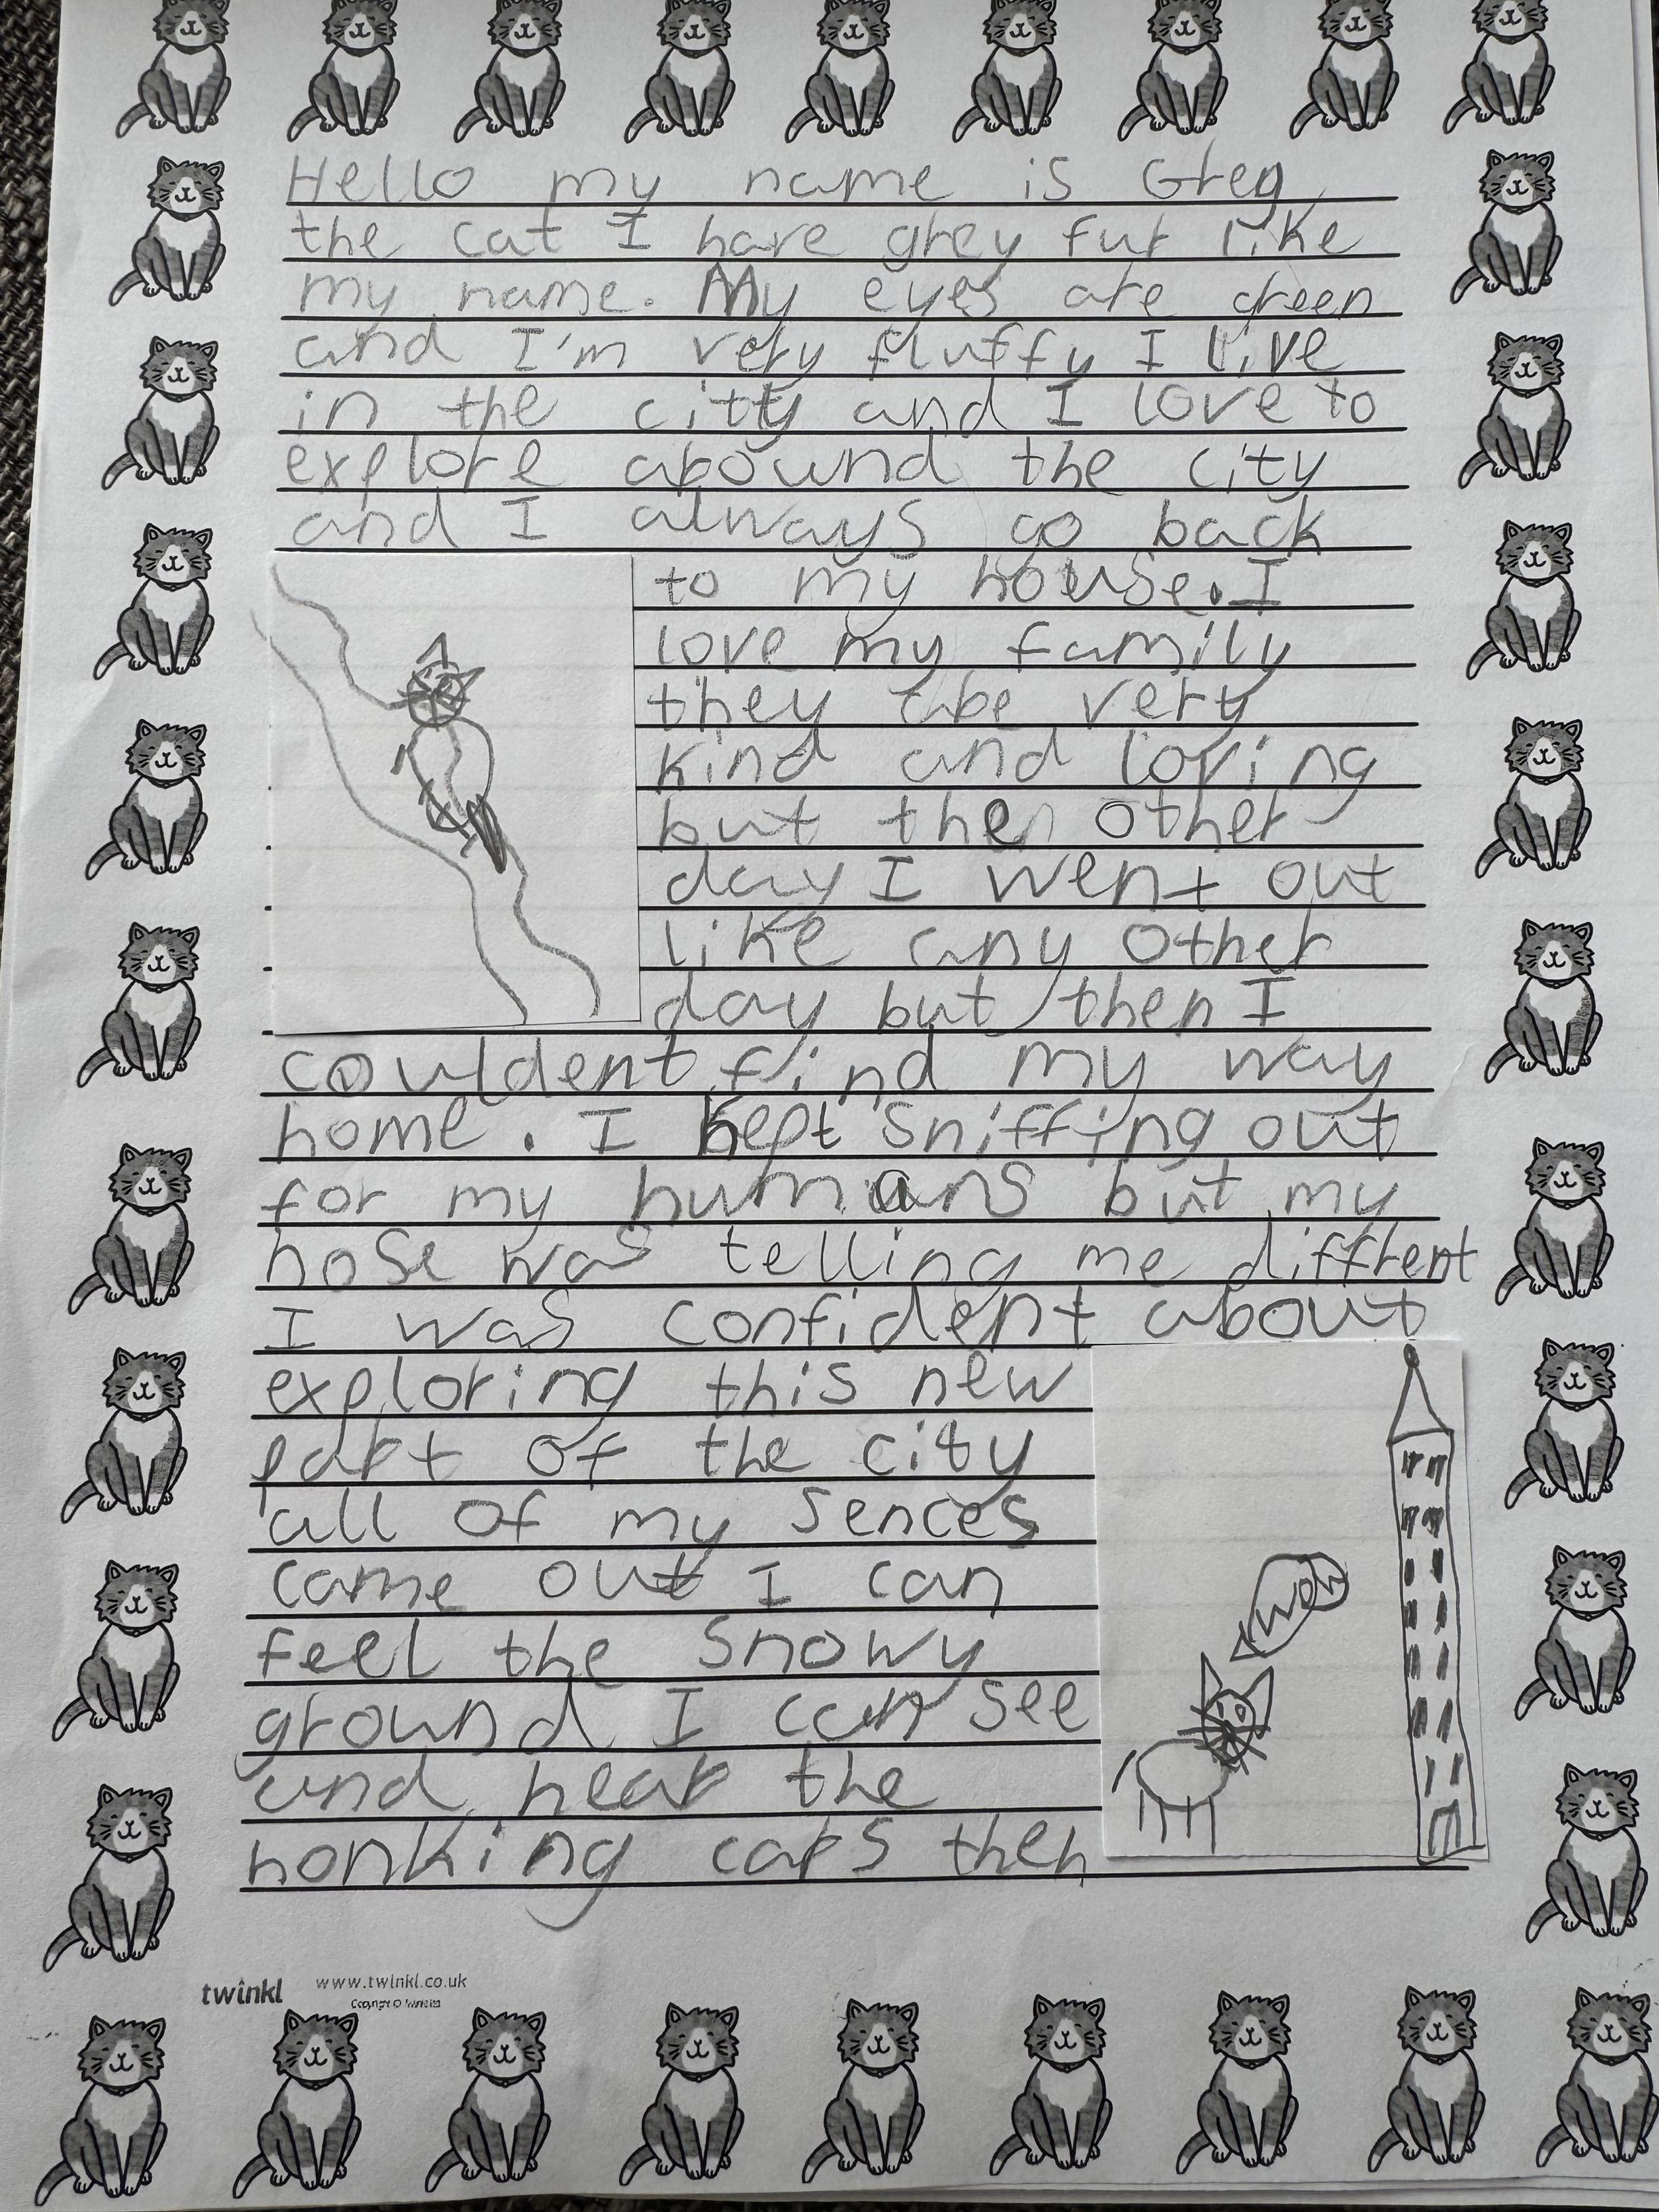 Hello my name is Greg
the cat I have grey fur like
my name. My eyes are green
and I'm very fluffy I live
in the city and I love to
explore abound the city
and I always go back
to my house. I
love my family
they abe very
kind and loving
but the other
day I went out
like any other
day but then I
couldent find my way
home. I kept sniffing out
for my humans but my
nose was telling me diffrent
I was confident about
exploring this new
part of the city
all of my sences
came out I can
feel the snowy
ground I can see
and hear the
honking cars then
wow
twinkl www.twinkl.co.uk